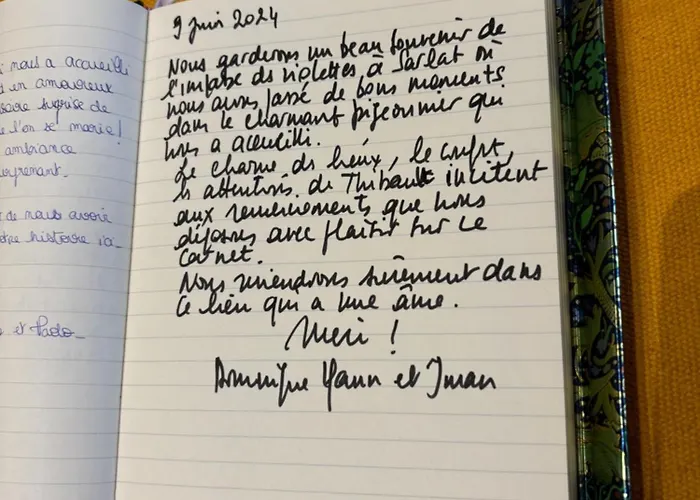 i nous a accueilli
t en amoureux
saire surprise de
e l'on se marie!
ambiance
oyenant.
de nous avoir
otre histoire
s et Pado
9 Juin 2024
Nous garderons un beau souvenir de
l'impasse des violettes à Sarlat où
nous avons passé de bons moments
dans le charmant pigeonnier qui
nous a accueilli.
Le charme des lieux, le confort,
les attentions de Thibault incitent
aux remerciements que nous
déposons avec plaisir sur ce
carnet.
Nous reviendrons sûrement dans
ce lieu qui a une âme.
Merci !
Dominique Yann et Iman